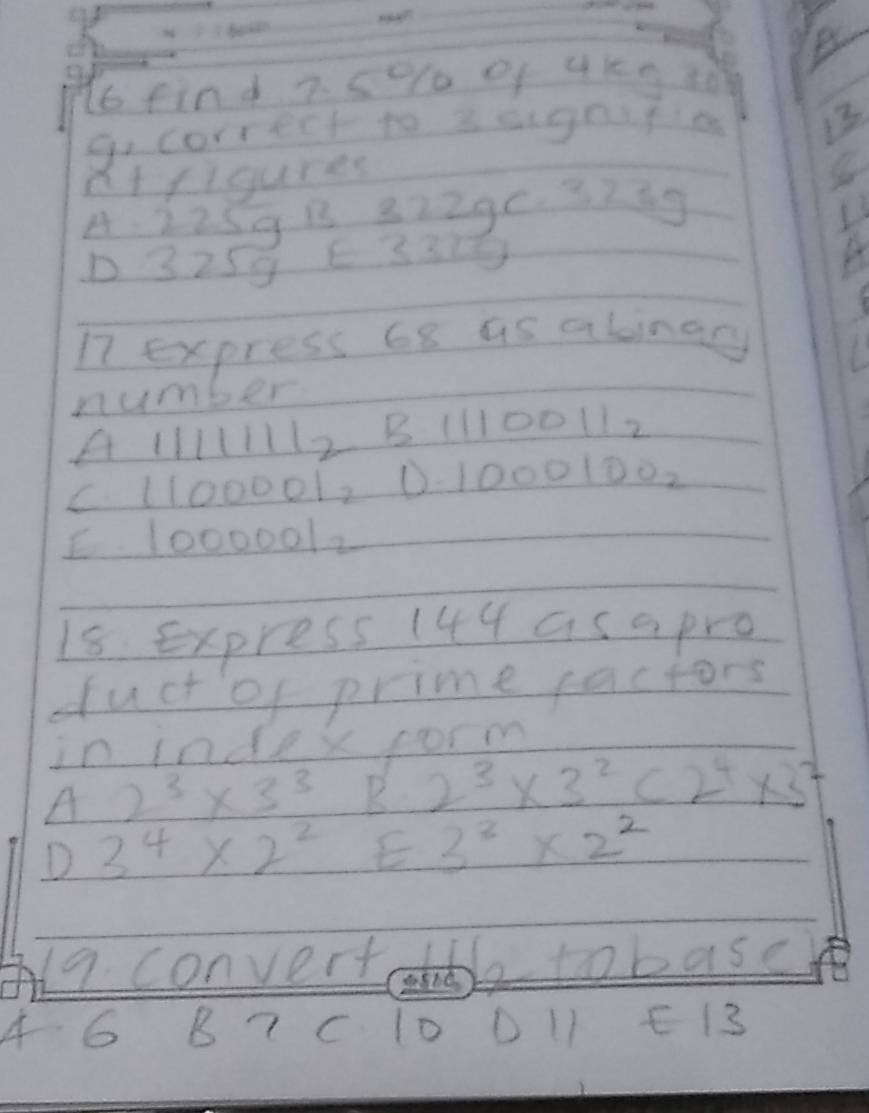 16 find 7.5% of 4kg to
g, correct to 3 signific
nt figures
A. 225g B 322g C. 323g
D 325g E
17 Express 68 as a binary
number
A 1111111₂ B 1110011₂
C. 1100001₂ D. 1000100₂
E. 1000001₂
18. Express 144 as a pro
duct of prime factors
in index form
A 2³ × 3³ B. 2³ × 3² C 2⁴ × 3²
D 3⁴ × 2² E 3² × 2²
19. convert 111₂ to base
A 6 B 7 C 10 D 11 E 13